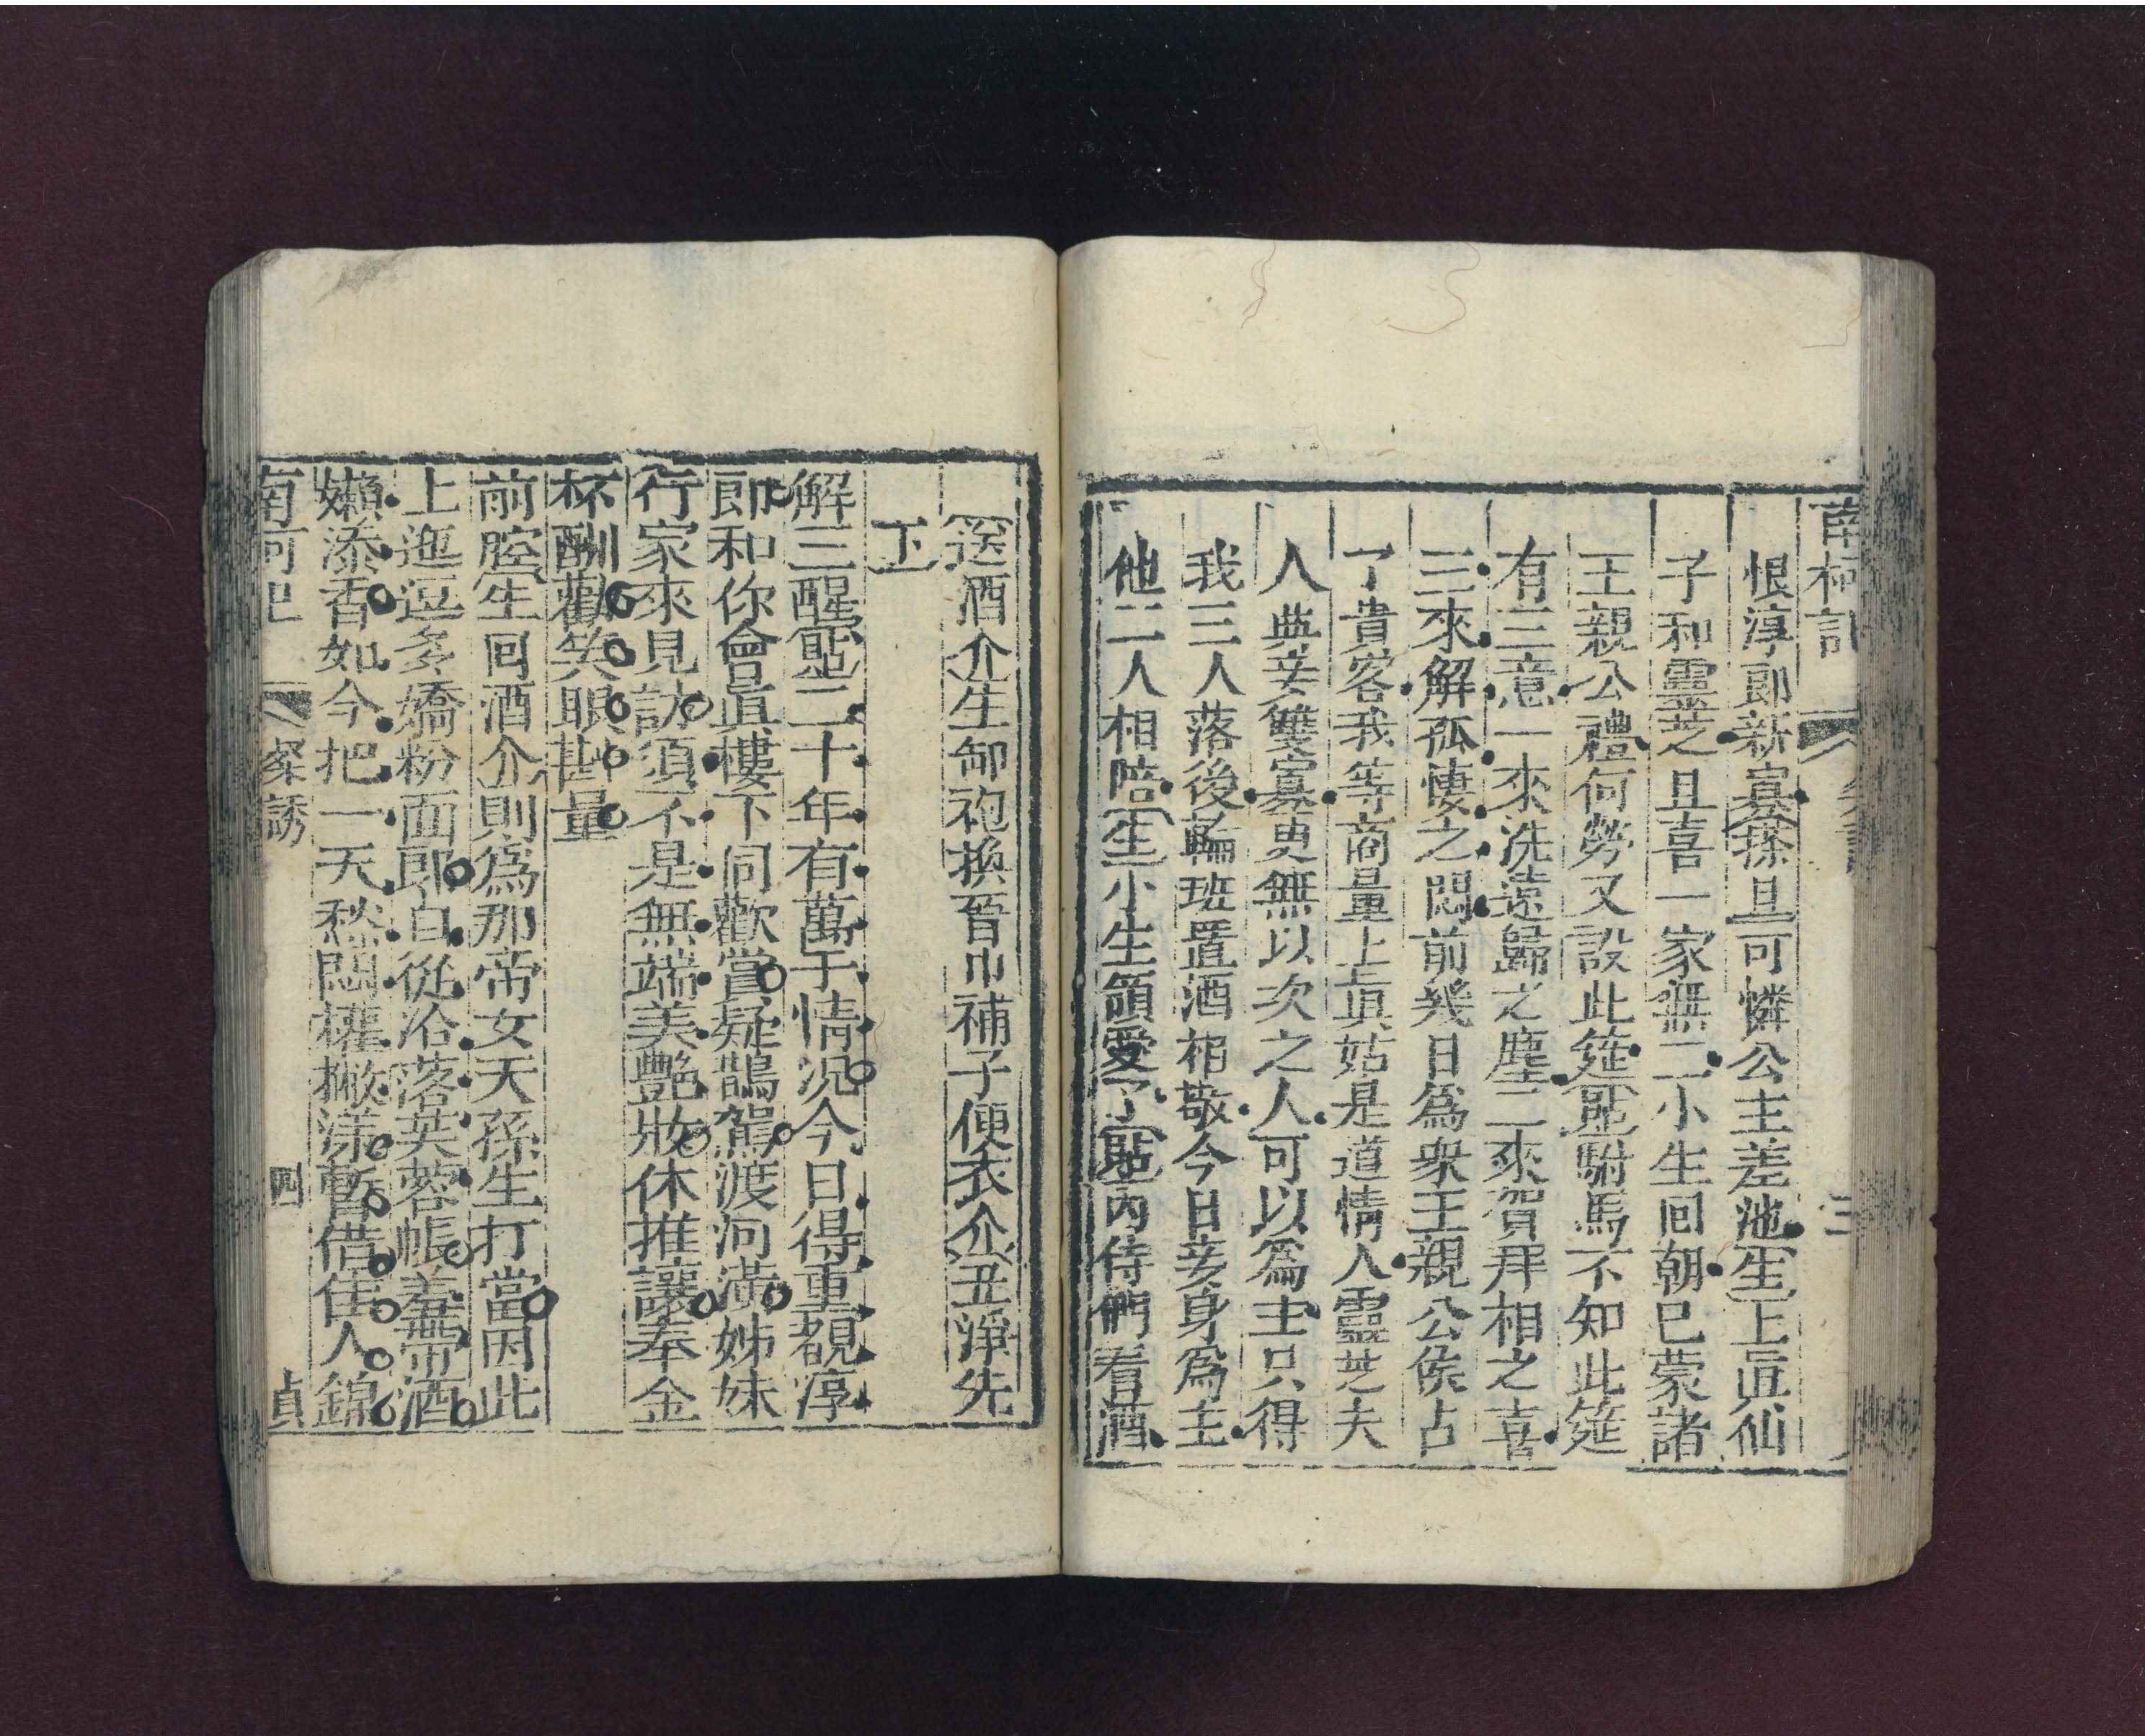 南柯記
三
恨淳郎新寡搽旦可憐公主差池生上眞仙
子和靈芝且喜一家無二小生回朝已蒙諸
王親公禮何勞又設此筵貼駙馬不知此筵
有三意一來洗遠歸之塵二來賀拜相之喜
三來解孤悽之悶前幾日爲衆王親公侯占
了貴客我等商量上眞姑是道情人靈芝夫
人與妾雙寡更無以次之人可以爲主只得
我三人落後輪班置酒相敬今日妾身爲主
他二人相陪生小生領愛了貼內侍們看酒
送酒介生卸袍換晉巾補子便衣介丑淨先
下
解三酲貼二十年有萬千情況今日得重覩淳
郎和你會眞樓下同歡賞疑鵲駕渡河潢姊妹
行家來見訪須不是無端美艷妝休推讓奉金
杯酬勸笑眼斟量
前腔生回酒介則爲那帝女天孫生打當因此
上迤逗多嬌粉面郎自從冷落芙蓉帳羞帶酒
嬾添香如今把一天愁悶權撇漾暫借佳人錦
南柯記
粲誘
四
貞